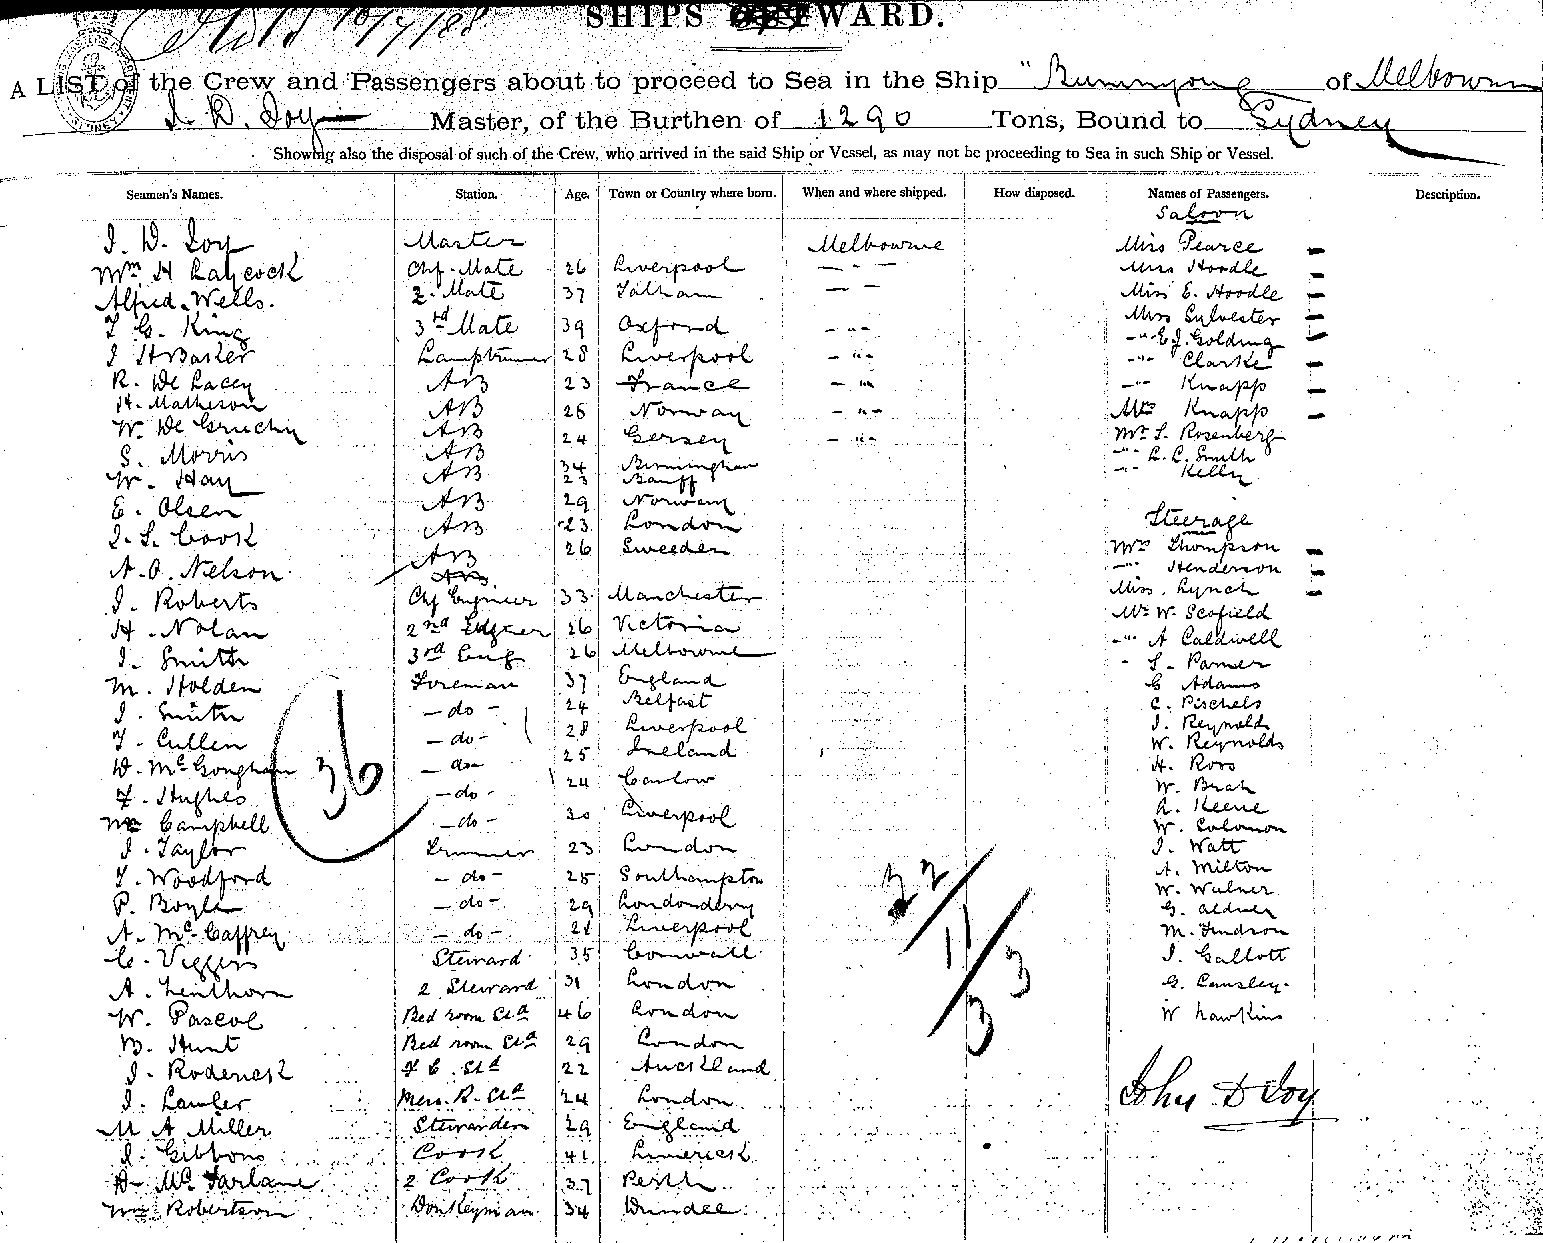 10/7/88
SHIPS WARD.
A LIST of the Crew and Passengers about to proceed to Sea in the Ship "Buninyong of Melbourne
J. D. Joy Master, of the Burthen of 1290 Tons, Bound to Sydney
Showing also the disposal of such of the Crew, who arrived in the said Ship or Vessel, as may not be proceeding to Sea in such Ship or Vessel.
Seamen's Names. Station. Age. Town or Country where born. When and where shipped. How disposed. Names of Passengers. Description.
Saloon
J. D. Joy Master Melbourne Miss Pearce
Wm H Laycock Chf. Mate 26 Liverpool - " - Miss Hoodle
Alfred Wells. 2. Mate 37 - " - Miss E. Hoodle
T. G. King 3rd Mate 39 Oxford - " - Miss Sylvester
J H Barker Lamptrimmer 28 Liverpool - " - - " - E J. Golding
- " - Clarke
R. De Lacey AB 23 France - " - - " - Knapp
H. Matheson AB 25 Norway - " - Mrs Knapp
W. De Gruchy AB 24 Gersey - " - Mr S. Rosenberg
S. Morris AB 34 Birmingham - " - L. C. Smith
W. Hay AB 23 Banff - " - Kelly
E. Olsen AB 29 Norway
J. S. Cook AB 23 London Steerage
A. O. Nelson AB 26 Sweeden Mrs Thompson
AB - " - Henderson
J. Roberts Chf Engineer 33 Manchester Miss Lynch
H. Nolan 2nd Engner 26 Victoria Mr W. Scofield
J. Smith 3rd Eng 26 Melbourne - " - A Caldwell
M. Holden Foreman 37 England
J. Smith - do - 24 Belfast G Adams
T. Cullen - do - 28 Liverpool C. Pischels
J. Reynolds
D. McGonghan - do - 25 Ireland W. Reynolds
F. Hughes - do - 24 Carlow H. Ross
Wm Campbell - do - 30 Liverpool
A. Keene
36
W. Solomon
J. Taylor Trimmer 23 London J. Watt
T. Woodford - do - 25 Southampton A. Milton
P. Boyle - do - 29 Londonderry
A. McCaffrey - do - 21 Liverpool
C. Viggers Steward 35 Cornwall J. Gallott
A. Linthorn 2 Steward 31 London G. Cansley
W. Pascoe Bed room Std 46 London W Hawkins
B. Hunt Bed room Std 29 London
22/11/33
J. Roderick F C. Std 22 Auckland
J. Lawler Mess. R. Std 24 London John D Joy
M A Miller Stewardess 29 England
J. Gibbons Cook 41 Limerick
D. McFarlane 2 Cook 37 Perth
Wm Robertson Donkeyman 34 Dundee